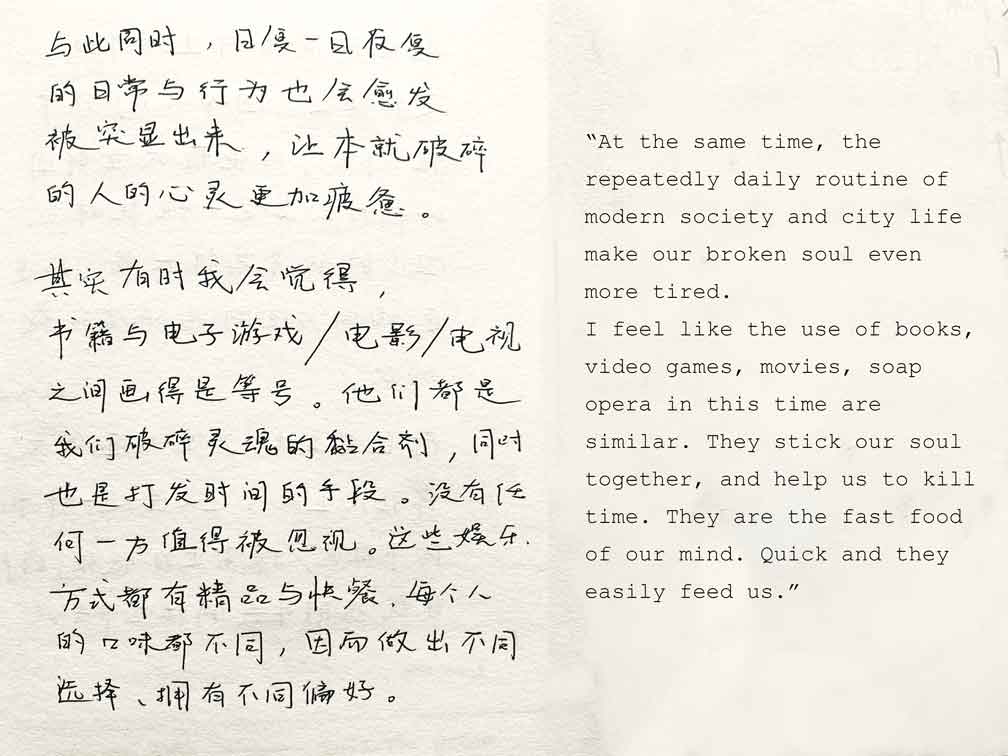 与此同时，日复一日夜复
的日常与行为也会愈发
被突显出来，让本就破碎
的人的心灵更加疲惫。
其实有时我会觉得，
书籍与电子游戏/电影/电视
之间画得是等号。他们都是
我们破碎灵魂的黏合剂，同时
也是打发时间的手段。没有任
何一方值得被忽视。这些娱乐
方式都有精品与快餐、每个人
的口味都不同，因而做出不同
选择、拥有不同偏好。
“At the same time, the
repeatedly daily routine of
modern society and city life
make our broken soul even
more tired.
I feel like the use of books,
video games, movies, soap
opera in this time are
similar. They stick our soul
together, and help us to kill
time. They are the fast food
of our mind. Quick and they
easily feed us.”